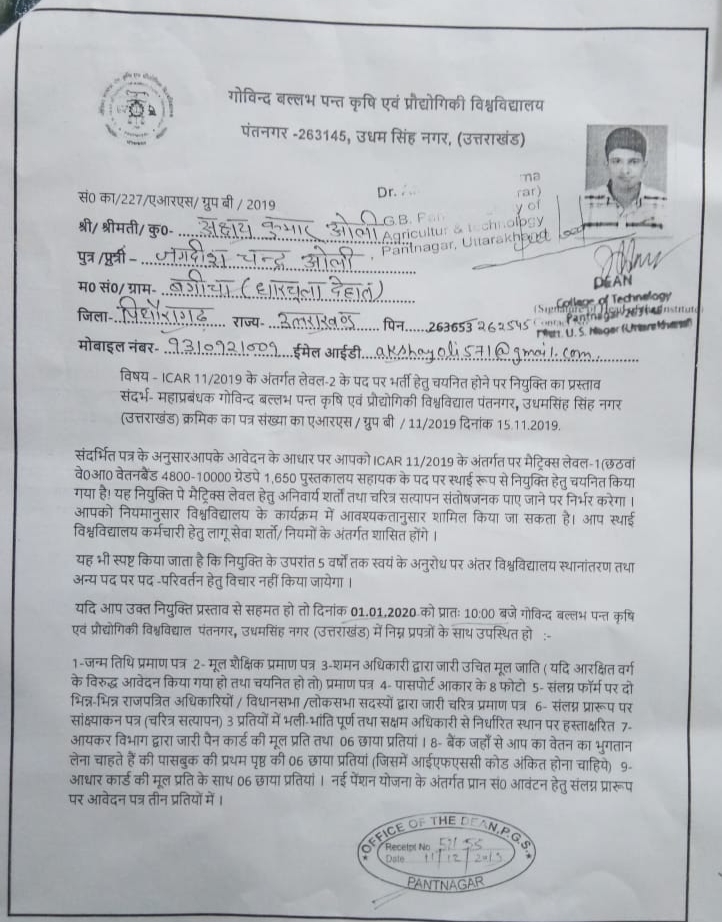 गोविन्द बल्लभ पन्त कृषि एवं प्रौद्योगिकी विश्वविद्यालय
पंतनगर -263145, उधम सिंह नगर, (उत्तराखंड)
सं0 का/227/एआरएस/ ग्रुप बी / 2019
Dr.
ma
rar)
y of
G.B. Pan
Agricultur & technology
Pantnagar, Uttarakhand
श्री/ श्रीमती/ कु0- अक्षय कुमार ओली
पुत्र /पुत्री – जगदीश चन्द्र ओली
म0 सं0/ ग्राम- बगीचा (धारचूला देहात)
जिला- पिथौरागढ़ राज्य- उत्तराखण्ड पिन 263653 262545
DEAN
College of Technology
Pantnagar
U. S. Nagar (Uttarakhand)
मोबाईल नंबर- 9310921009 ईमेल आईडी akshayoli571@gmail.com
विषय - ICAR 11/2019 के अंतर्गत लेवल-2 के पद पर भर्ती हेतु चयनित होने पर नियुक्ति का प्रस्ताव
संदर्भ- महाप्रबंधक गोविन्द बल्लभ पन्त कृषि एवं प्रौद्योगिकी विश्वविद्याल पंतनगर, उधमसिंह सिंह नगर
(उत्तराखंड) क्रमिक का पत्र संख्या का एआरएस / ग्रुप बी / 11/2019 दिनांक 15.11.2019.
संदर्भित पत्र के अनुसारआपके आवेदन के आधार पर आपको ICAR 11/2019 के अंतर्गत पर मैट्रिक्स लेवल-1(छठवां
वे0आ0 वेतनबैंड 4800-10000 ग्रेडपे 1,650 पुस्तकालय सहायक के पद पर स्थाई रूप से नियुक्ति हेतु चयनित किया
गया है! यह नियुक्ति पे मैट्रिक्स लेवल हेतु अनिवार्य शर्तो तथा चरित्र सत्यापन संतोषजनक पाए जाने पर निर्भर करेगा ।
आपको नियमानुसार विश्वविद्यालय के कार्यक्रम में आवश्यकतानुसार शामिल किया जा सकता है। आप स्थाई
विश्वविद्यालय कर्मचारी हेतु लागू सेवा शर्तो/ नियमों के अंतर्गत शासित होंगे ।
यह भी स्पष्ट किया जाता है कि नियुक्ति के उपरांत 5 वर्षों तक स्वयं के अनुरोध पर अंतर विश्वविद्यालय स्थानांतरण तथा
अन्य पद पर पद -परिवर्तन हेतु विचार नहीं किया जायेगा ।
यदि आप उक्त नियुक्ति प्रस्ताव से सहमत हो तो दिनांक 01.01.2020 को प्रातः 10:00 बजे गोविन्द बल्लभ पन्त कृषि
एवं प्रौद्योगिकी विश्वविद्याल पंतनगर, उधमसिंह नगर (उत्तराखंड) में निम्न प्रपत्रों के साथ उपस्थित हो :-
1-जन्म तिथि प्रमाण पत्र 2- मूल शैक्षिक प्रमाण पत्र 3-शमन अधिकारी द्वारा जारी उचित मूल जाति ( यदि आरक्षित वर्ग
के विरुद्ध आवेदन किया गया हो तथा चयनित हो तो) प्रमाण पत्र 4- पासपोर्ट आकार के 8 फोटो 5- संलग्न फॉर्म पर दो
भिन्न-भिन्न राजपत्रित अधिकारियों / विधानसभा /लोकसभा सदस्यों द्वारा जारी चरित्र प्रमाण पत्र 6- संलग्न प्रारूप पर
सांक्ष्याकन पत्र (चरित्र सत्यापन) 3 प्रतियों में भली-भांति पूर्ण तथा सक्षम अधिकारी से निर्धारित स्थान पर हस्ताक्षरित 7-
आयकर विभाग द्वारा जारी पैन कार्ड की मूल प्रति तथा 06 छाया प्रतियां । 8- बैंक जहाँ से आप का वेतन का भुगतान
लेना चाहते हैं की पासबुक की प्रथम पृष्ठ की 06 छाया प्रतियां (जिसमें आईएफएससी कोड अंकित होना चाहिये) 9-
आधार कार्ड की मूल प्रति के साथ 06 छाया प्रतियां । नई पेंशन योजना के अंतर्गत प्रान सं0 आवंटन हेतु संलग्न प्रारूप
पर आवेदन पत्र तीन प्रतियों में ।
OFFICE OF THE DEAN, P.G.S.
Receipt No
Date 11/12/2019
PANTNAGAR